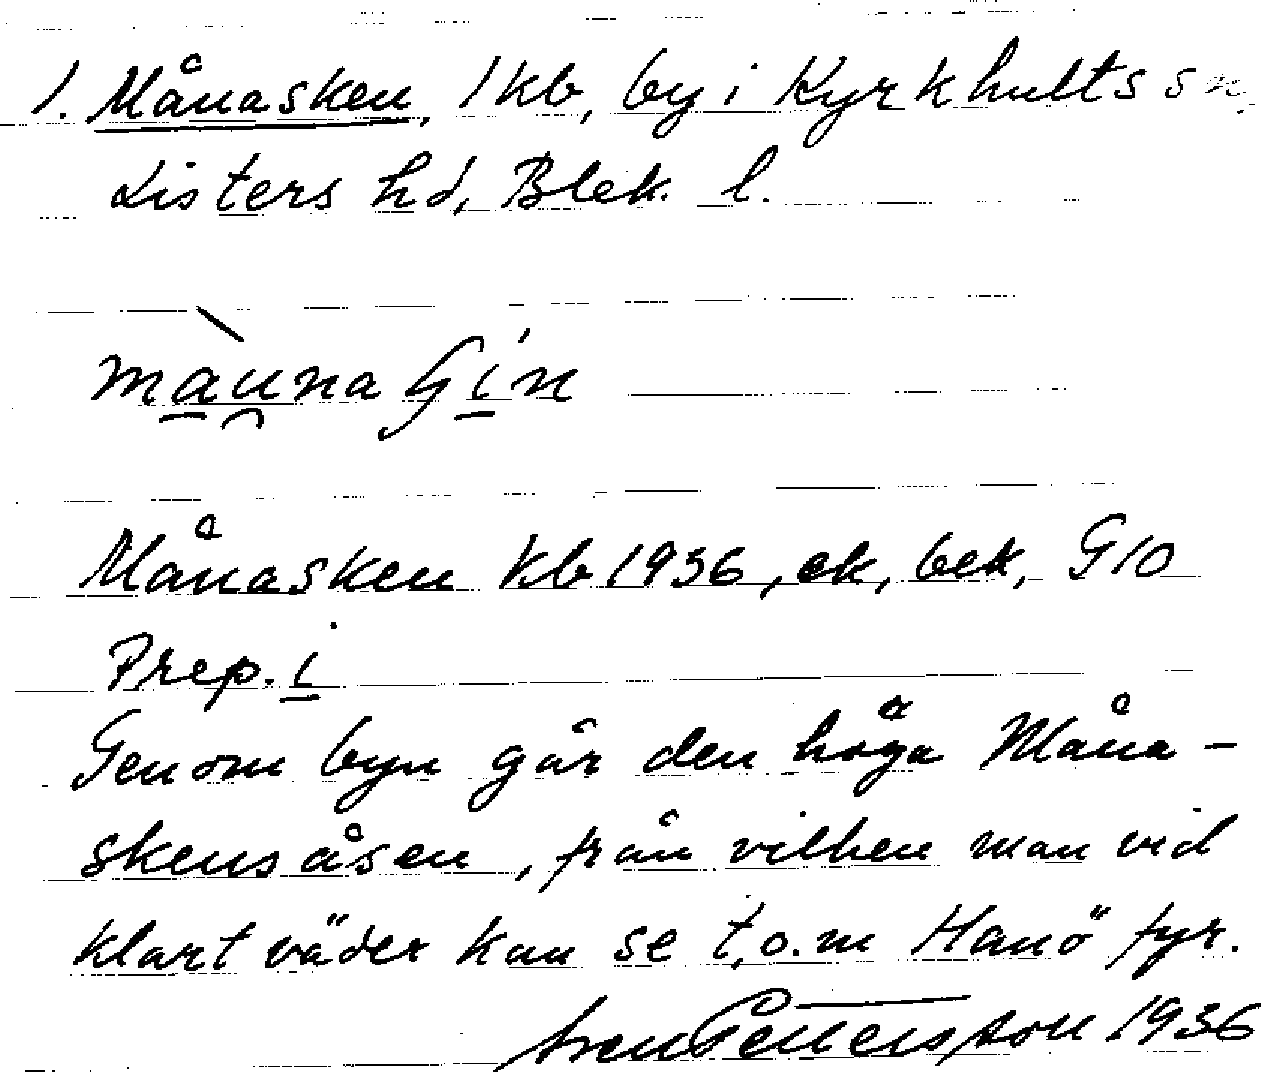 1. Månasken, 1 kb, by i Kyrkhults sn,
Listers hd, Blek. l.
Månasken Kb 1936, ek, bek, G10
Prep. i
Genom byn går den höga Måna-
skensåsen, från vilken man vid
klart väder kan se t.o.m Hanö fyr.
Pettersson 1936